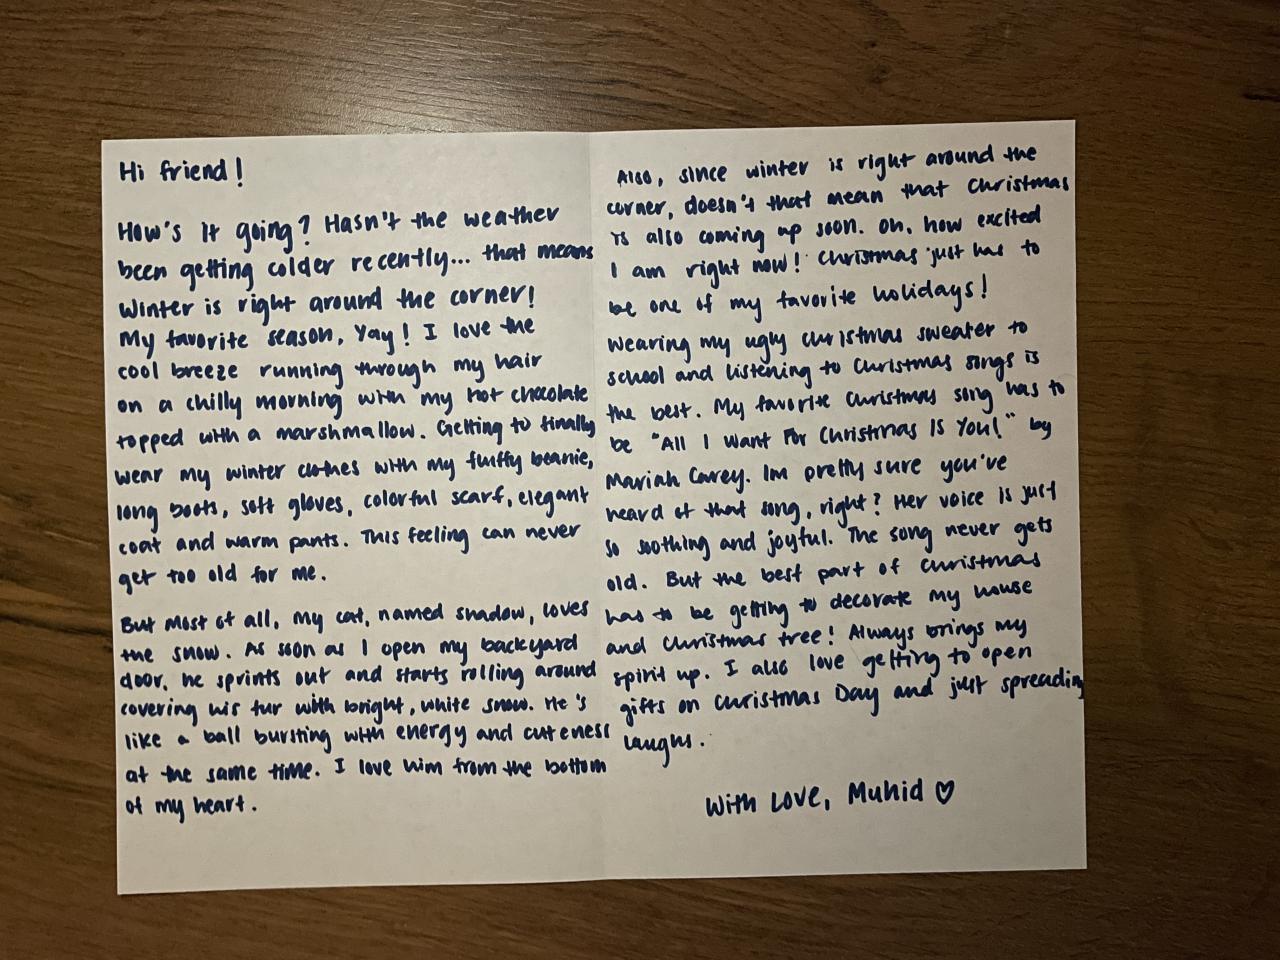 Hi friend!
How's it going? Hasn't the weather
been getting colder recently... that means
winter is right around the corner!
My favorite season, Yay! I love the
cool breeze running through my hair
on a chilly morning with my hot chocolate
topped with a marshmallow. Getting to finally
wear my winter clothes with my fluffy beanie,
long boots, soft gloves, colorful scarf, elegant
coat and warm pants. This feeling can never
get too old for me.
But most of all, my cat, named shadow, loves
the snow. As soon as I open my backyard
door, he sprints out and starts rolling around
covering his fur with bright, white snow. He's
like a ball bursting with energy and cuteness
at the same time. I love him from the bottom
of my heart.
Also, since winter is right around the
corner, doesn't that mean that Christmas
is also coming up soon. Oh, how excited
I am right now! Christmas just has to
be one of my favorite holidays!
Wearing my ugly Christmas sweater to
school and listening to Christmas songs is
the best. My favorite Christmas song has to
be "All I Want For Christmas Is You!" by
Mariah Carey. Im pretty sure you've
heard of that song, right? Her voice is just
so soothing and joyful. The song never gets
old. But the best part of Christmas
has to be getting to decorate my house
and Christmas tree! Always brings my
spirit up. I also love getting to open
gifts on Christmas Day and just spreading
laughs.
With Love, Muhid ♡